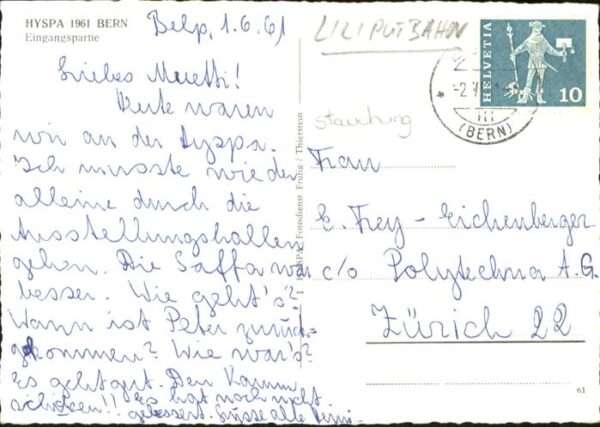 HYSPA 1961 BERN
Eingangspartie
Belp, 1.6.61
Liebes Muetti!
Heute waren
wir an der Hyspa.
Ich musste wieder
alleine durch die
Ausstellungshallen
gehen. Die Saffa war
besser. Wie geht's?
Wann ist Peter zurück-
gekommen? Wie war's?
Es geht gut. Den Kamm
schicken!! Es hat noch nicht
gebessert. Grüsse alle
HYSPA Fotodienst Frutig / Thierstein
LILIPUTBAHN
stauchung
HELVETIA
10
(BERN)
Frau
E. Frey - Eichenberger
c/o Polytechna A.G.
Zürich 22
61